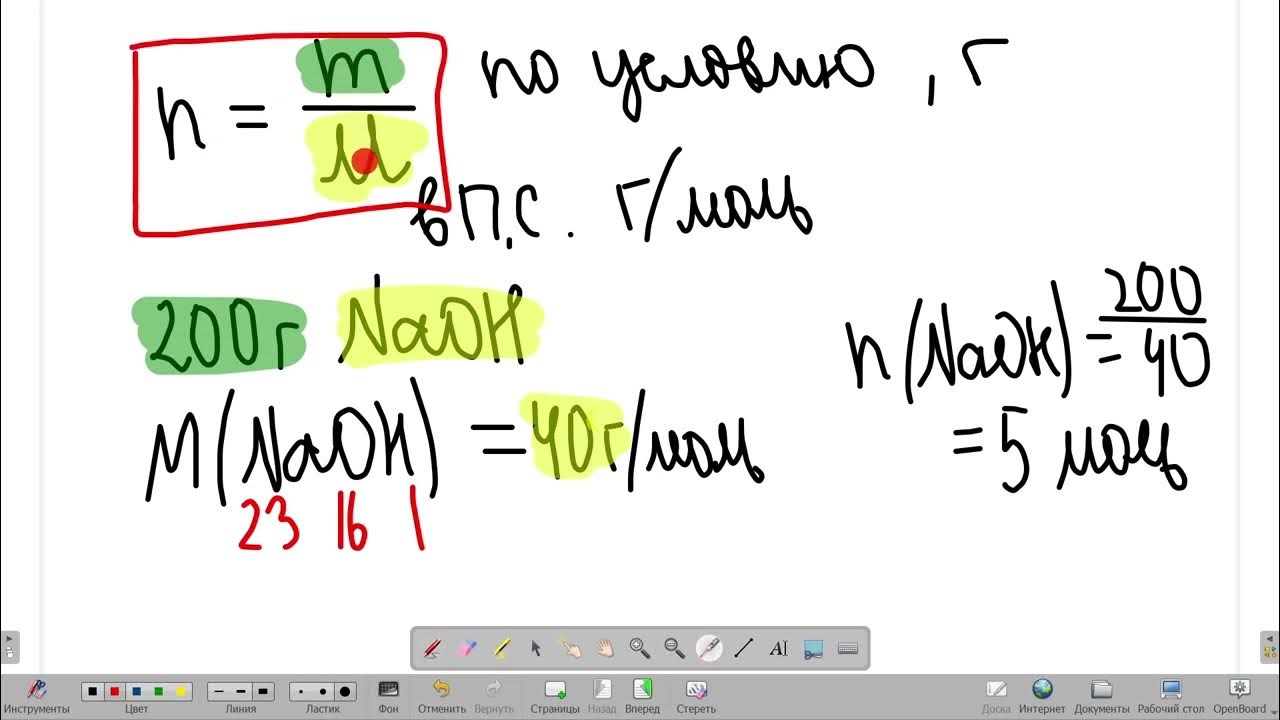 n = m/M по условию, г
в П.С. г/моль
200г NaOH
n(NaOH) = 200/40
M(NaOH) = 40г/моль
= 5 моль
23 16 1
Инструменты
Цвет
Линия
Ластик
Фон
Отменить
Вернуть
Страницы
Назад
Вперед
Стереть
Доска
Интернет
Документы
Рабочий стол
OpenBoard